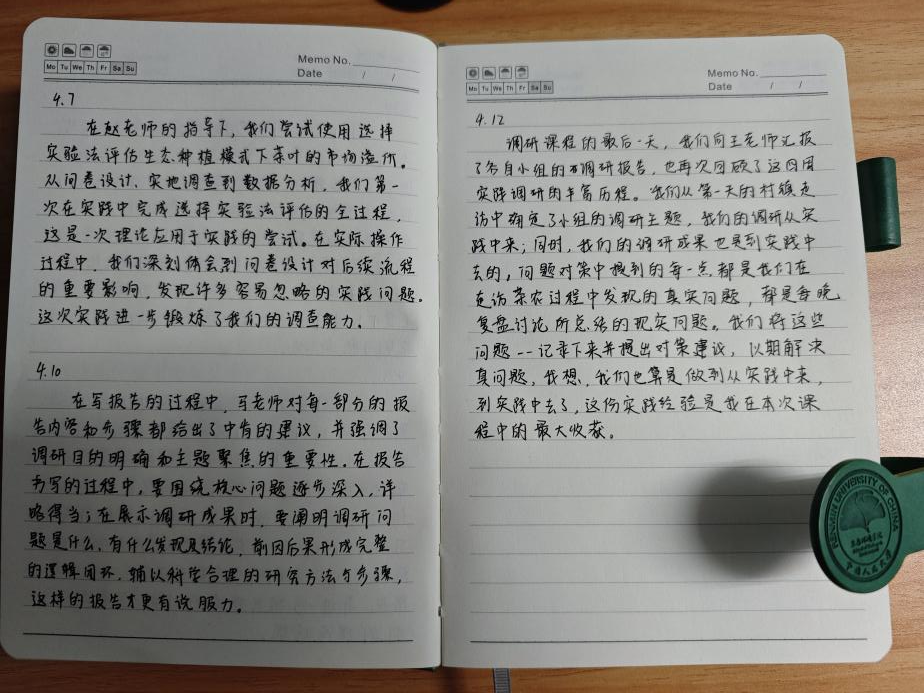 Mo Tu We Th Fr Sa Su
Memo No.
Date / /
4.7
在赵老师的指导下，我们尝试使用选择
实验法评估生态种植模式下茶叶的市场溢价。
从问卷设计、实地调查到数据分析，我们第一
次在实践中完成选择实验法评估的全过程，
这是一次理论应用于实践的尝试。在实际操作
过程中，我们深刻体会到问卷设计对后续流程
的重要影响，发现许多容易忽略的实践问题。
这次实践进一步锻炼了我们的调查能力。
4.10
在写报告的过程中，老师对每一部分的报
告内容和步骤都给出了中肯的建议，并强调了
调研目的明确和主题聚焦的重要性。在报告
书写的过程中，要围绕核心问题逐步深入，详
略得当；在展示调研成果时，要阐明调研问
题是什么，有什么发现及结论，前因后果形成完整
的逻辑闭环，辅以科学合理的研究方法与步骤，
这样的报告才更有说服力。
Mo Tu We Th Fr Sa Su
Memo No.
Date / /
4.12
调研课程的最后一天，我们向王老师汇报
了各自小组的调研报告，也再次回顾了这四周
实践调研的丰富历程。我们从第一天的村镇走
访中确定了小组的调研主题，我们的调研从实
践中来；同时，我们的调研成果也是到实践中
去的，问题对策中提到的每一点都是我们在
走访茶农过程中发现的真实问题，都是每晚
复盘讨论所总结的现实问题。我们将这些
问题一一记录下来并提出对策建议，以期解决
真问题，我想，我们也算是做到从实践中来，
到实践中去了，这份实践经验是我在本次课
程中的最大收获。
RENMIN UNIVERSITY OF CHINA
中国人民大学